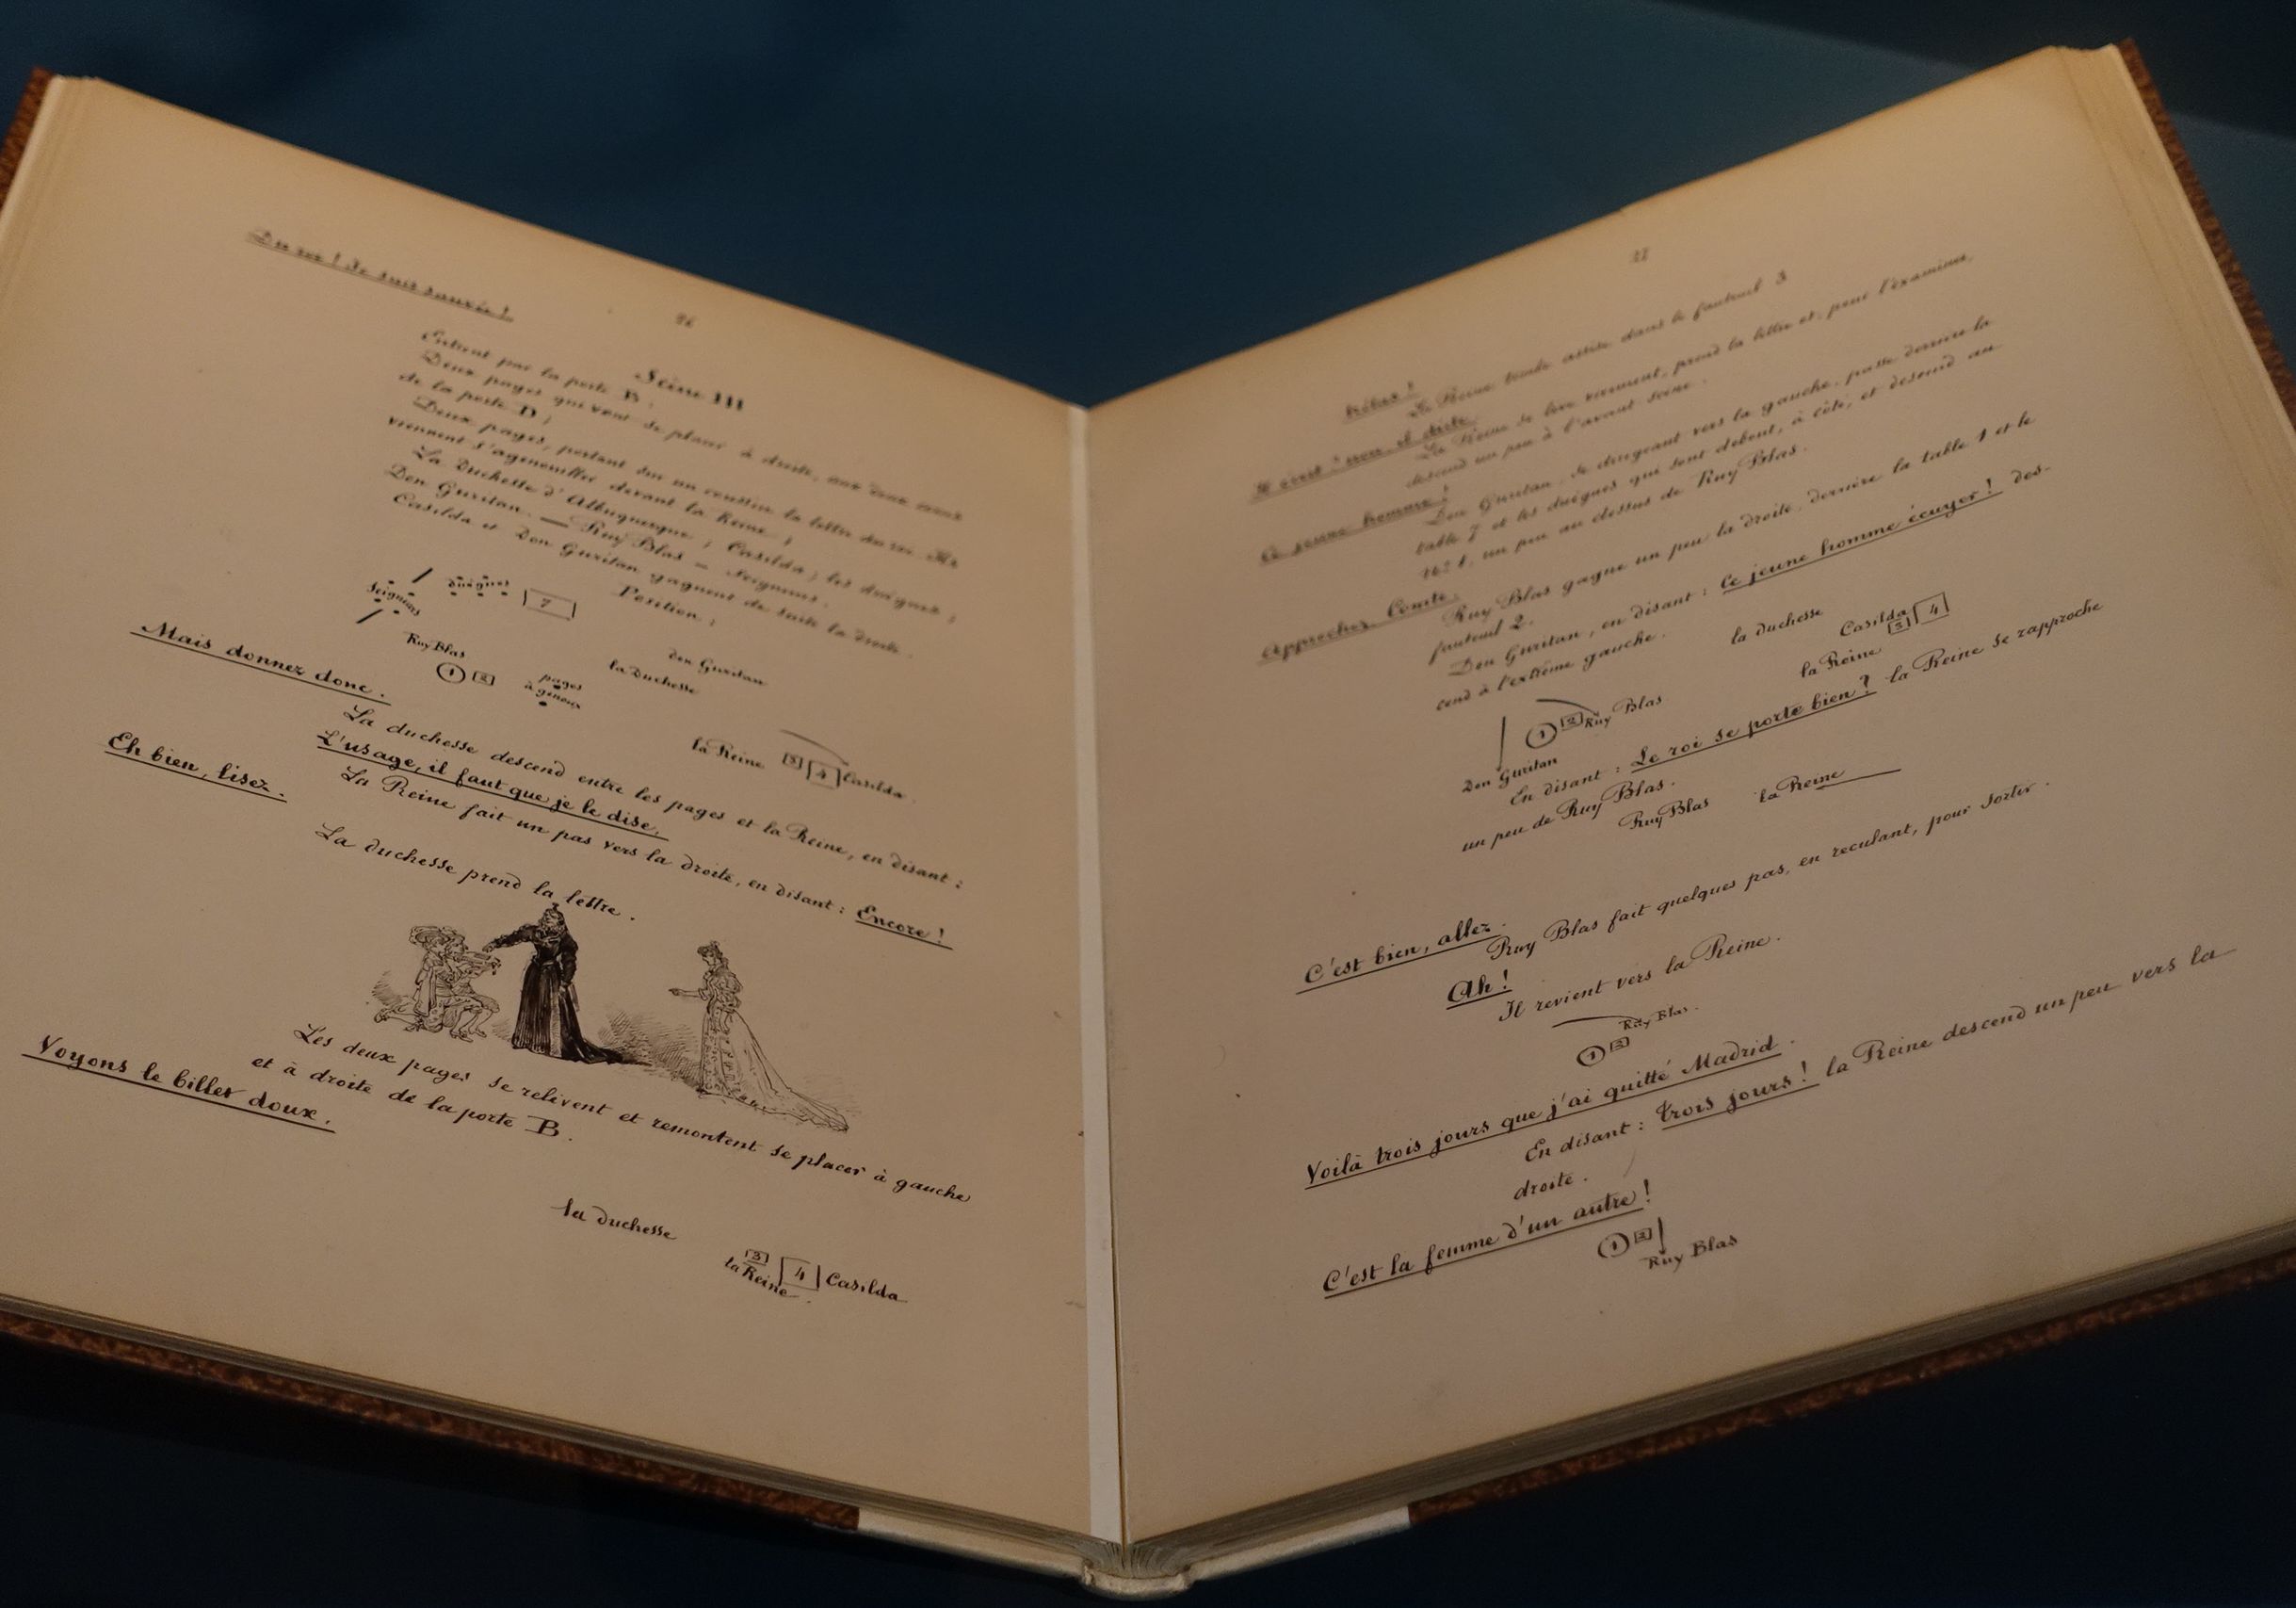 Du roi ! Je suis sauvée !
26
Scène III
Entrent par la porte B :
Deux pages qui vont se placer à droite, aux deux
de la porte D ;
Deux pages, portant sur un coussin la lettre du roi. Ils
viennent s'agenouiller devant la Reine ;
La Duchesse d'Albuquerque ; Casilda ; les duègnes ;
Don Guritan. — Ruy Blas — Seigneurs.
Casilda et Don Guritan gagnent de suite la droite.
Position :
Seigneurs
duègnes
7
Ruy Blas
1 2
pages
à genoux
la Duchesse
don Guritan
la Reine 3 4 Casilda.
Mais donnez donc.
La duchesse descend entre les pages et la Reine, en disant :
L'usage, il faut que je le dise,
La Reine fait un pas vers la droite, en disant : Encore !
Eh bien, lisez.
La duchesse prend la lettre.
Les deux pages se relèvent et remontent se placer à gauche
et à droite de la porte B.
Voyons le billet doux.
la duchesse
3
la Reine 4 Casilda
27
Hélas !
La Reine tombe assise dans le fauteuil 3
Il écrit ! non, il dicte
La Reine se lève vivement, prend la lettre et, pour l'examiner,
descend un peu à l'avant scène.
Ce jeune homme !
Don Guritan, se dirigeant vers la gauche, passe derrière la
table 7 et les duègnes qui sont debout, à côté, et descend au
N° 1, un peu au dessus de Ruy Blas.
Approchez, Comte.
Ruy Blas gagne un peu la droite, derrière la table 1 et le
fauteuil 2.
Don Guritan, en disant : Ce jeune homme écuyer ! des-
cend à l'extrême gauche.
la duchesse
Casilda 4
3
la Reine
1 2 Ruy Blas
Don Guritan
En disant : Le roi se porte bien ? la Reine se rapproche
un peu de Ruy Blas.
Ruy Blas la Reine
C'est bien, allez.
Ruy Blas fait quelques pas, en reculant, pour sortir.
Ah !
Il revient vers la Reine.
Ruy Blas.
1 2
Voilà trois jours que j'ai quitté Madrid.
En disant : trois jours ! la Reine descend un peu vers la
droite.
C'est la femme d'un autre !
1 2
Ruy Blas